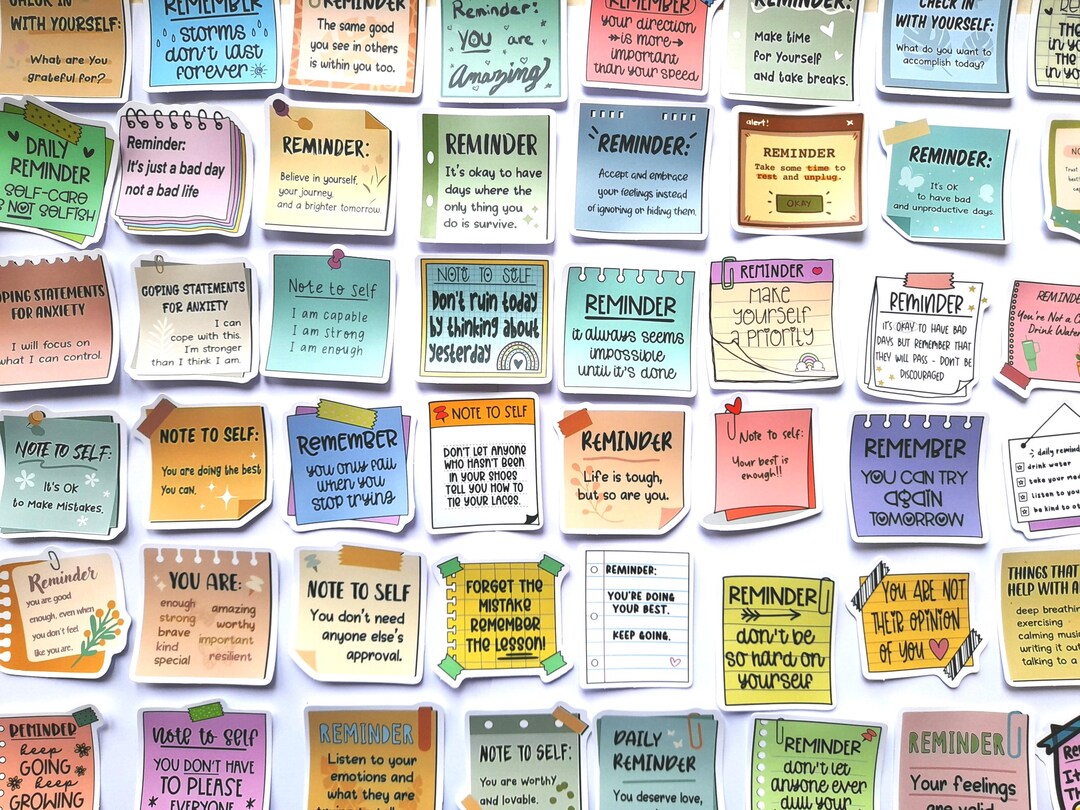 CHECK IN
WITH YOURSELF:
What are You
grateful for?
REMEMBER
storms
don't last
forever
REMINDER
The same good
you see in others
is within you too.
Reminder:
YOU are
Amazing
REMEMBER
your direction
is more
important
than your speed
REMINDER:
Make time
for Yourself
and take breaks.
CHECK IN
WITH YOURSELF:
What do you want to
accomplish today?
THE
in yo
THE
in yo
DAILY
REMINDER
SELF-CARE
IS NOT SELFISH
Reminder:
It's just a bad day
not a bad life
REMINDER:
Believe in yourself,
your journey,
and a brighter tomorrow.
REMINDER
It's okay to have
days where the
only thing you
do is survive.
REMINDER:
Accept and embrace
your feelings instead
of ignoring or hiding them.
alert! x
REMINDER
Take some time to
rest and unplug.
OKAY
REMINDER:
It's OK
to have bad
and unproductive days.
COPING STATEMENTS
FOR ANXIETY
I will focus on
what I can control.
COPING STATEMENTS
FOR ANXIETY
I can
cope with this.
I'm stronger
than I think I am.
Note to self
I am capable
I am strong
I am enough
NOTE TO SELF
Don't ruin today
by thinking about
yesterday
REMINDER
it always seems
impossible
until it's done
REMINDER
MAKE
yourself
a priority
REMINDER
IT'S OKAY TO HAVE BAD
DAYS BUT REMEMBER THAT
THEY WILL PASS - DON'T BE
DISCOURAGED
REMINDE
You're Not a C
Drink Wate
NOTE TO SELF:
It's Ok
to Make Mistakes.
NOTE TO SELF:
You are doing the best
You can.
REMEMBER
you only fail
when you
stop trying
NOTE TO SELF
DON'T LET ANYONE
WHO HASN'T BEEN
IN YOUR SHOES
TELL YOU HOW TO
TIE YOUR LACES.
REMINDER
Life is tough,
but so are you.
Note to self:
Your best is
enough!!
REMEMBER
YOU CAN TRY
AGAIN
TOMORROW
daily remind
drink water
take your me
listen to you
be kind to ot
Reminder
you are good
enough, even when
you don't feel
like you are.
YOU ARE:
enough amazing
strong worthy
brave important
kind resilient
special
NOTE TO SELF
You don't need
anyone else's
approval.
FORGET THE
MISTAKE
REMEMBER
THE LESSON!
REMINDER:
YOU'RE DOING
YOUR BEST.
KEEP GOING.
REMINDER
don't be
so hard on
yourself
YOU ARE NOT
THEIR OPINION
OF YOU
THINGS THAT
HELP WITH A
deep breathin
exercising
calming musi
writing it out
talking to a
REMINDER
keep
GOING
keep
GROWING
Note to self
YOU DON'T HAVE
TO PLEASE
EVERYONE
REMINDER
Listen to your
emotions and
what they are
NOTE TO SELF:
You are worthy
and lovable.
DAILY
REMINDER
You deserve love,
REMINDER
don't let
anyone ever
dull your
REMINDER
Your feelings
are valid